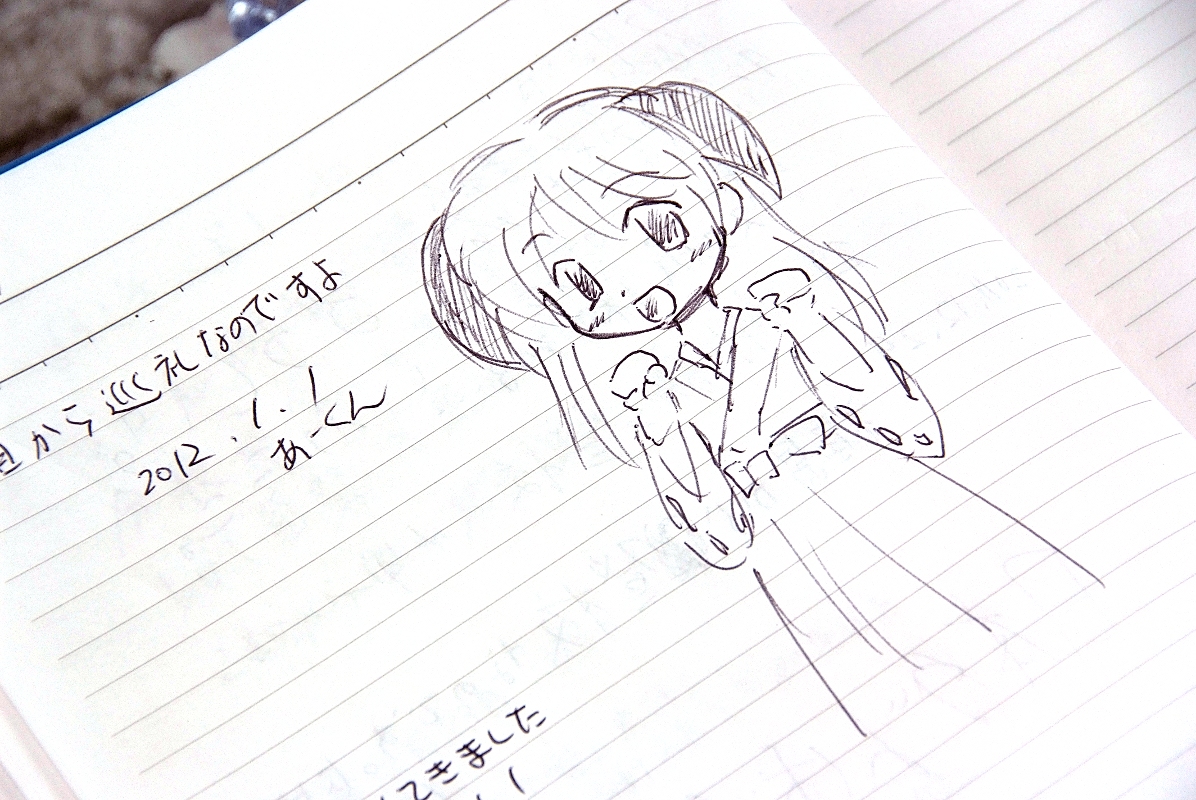 から巡礼なのですよ
2012.1.1
あーくん
てきました